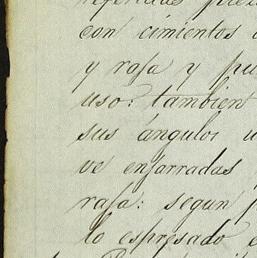 referidas
con cimientos
y rafa y
uso: tambien
sus ángulos
ve enjarradas
rafa: segun
lo espresado